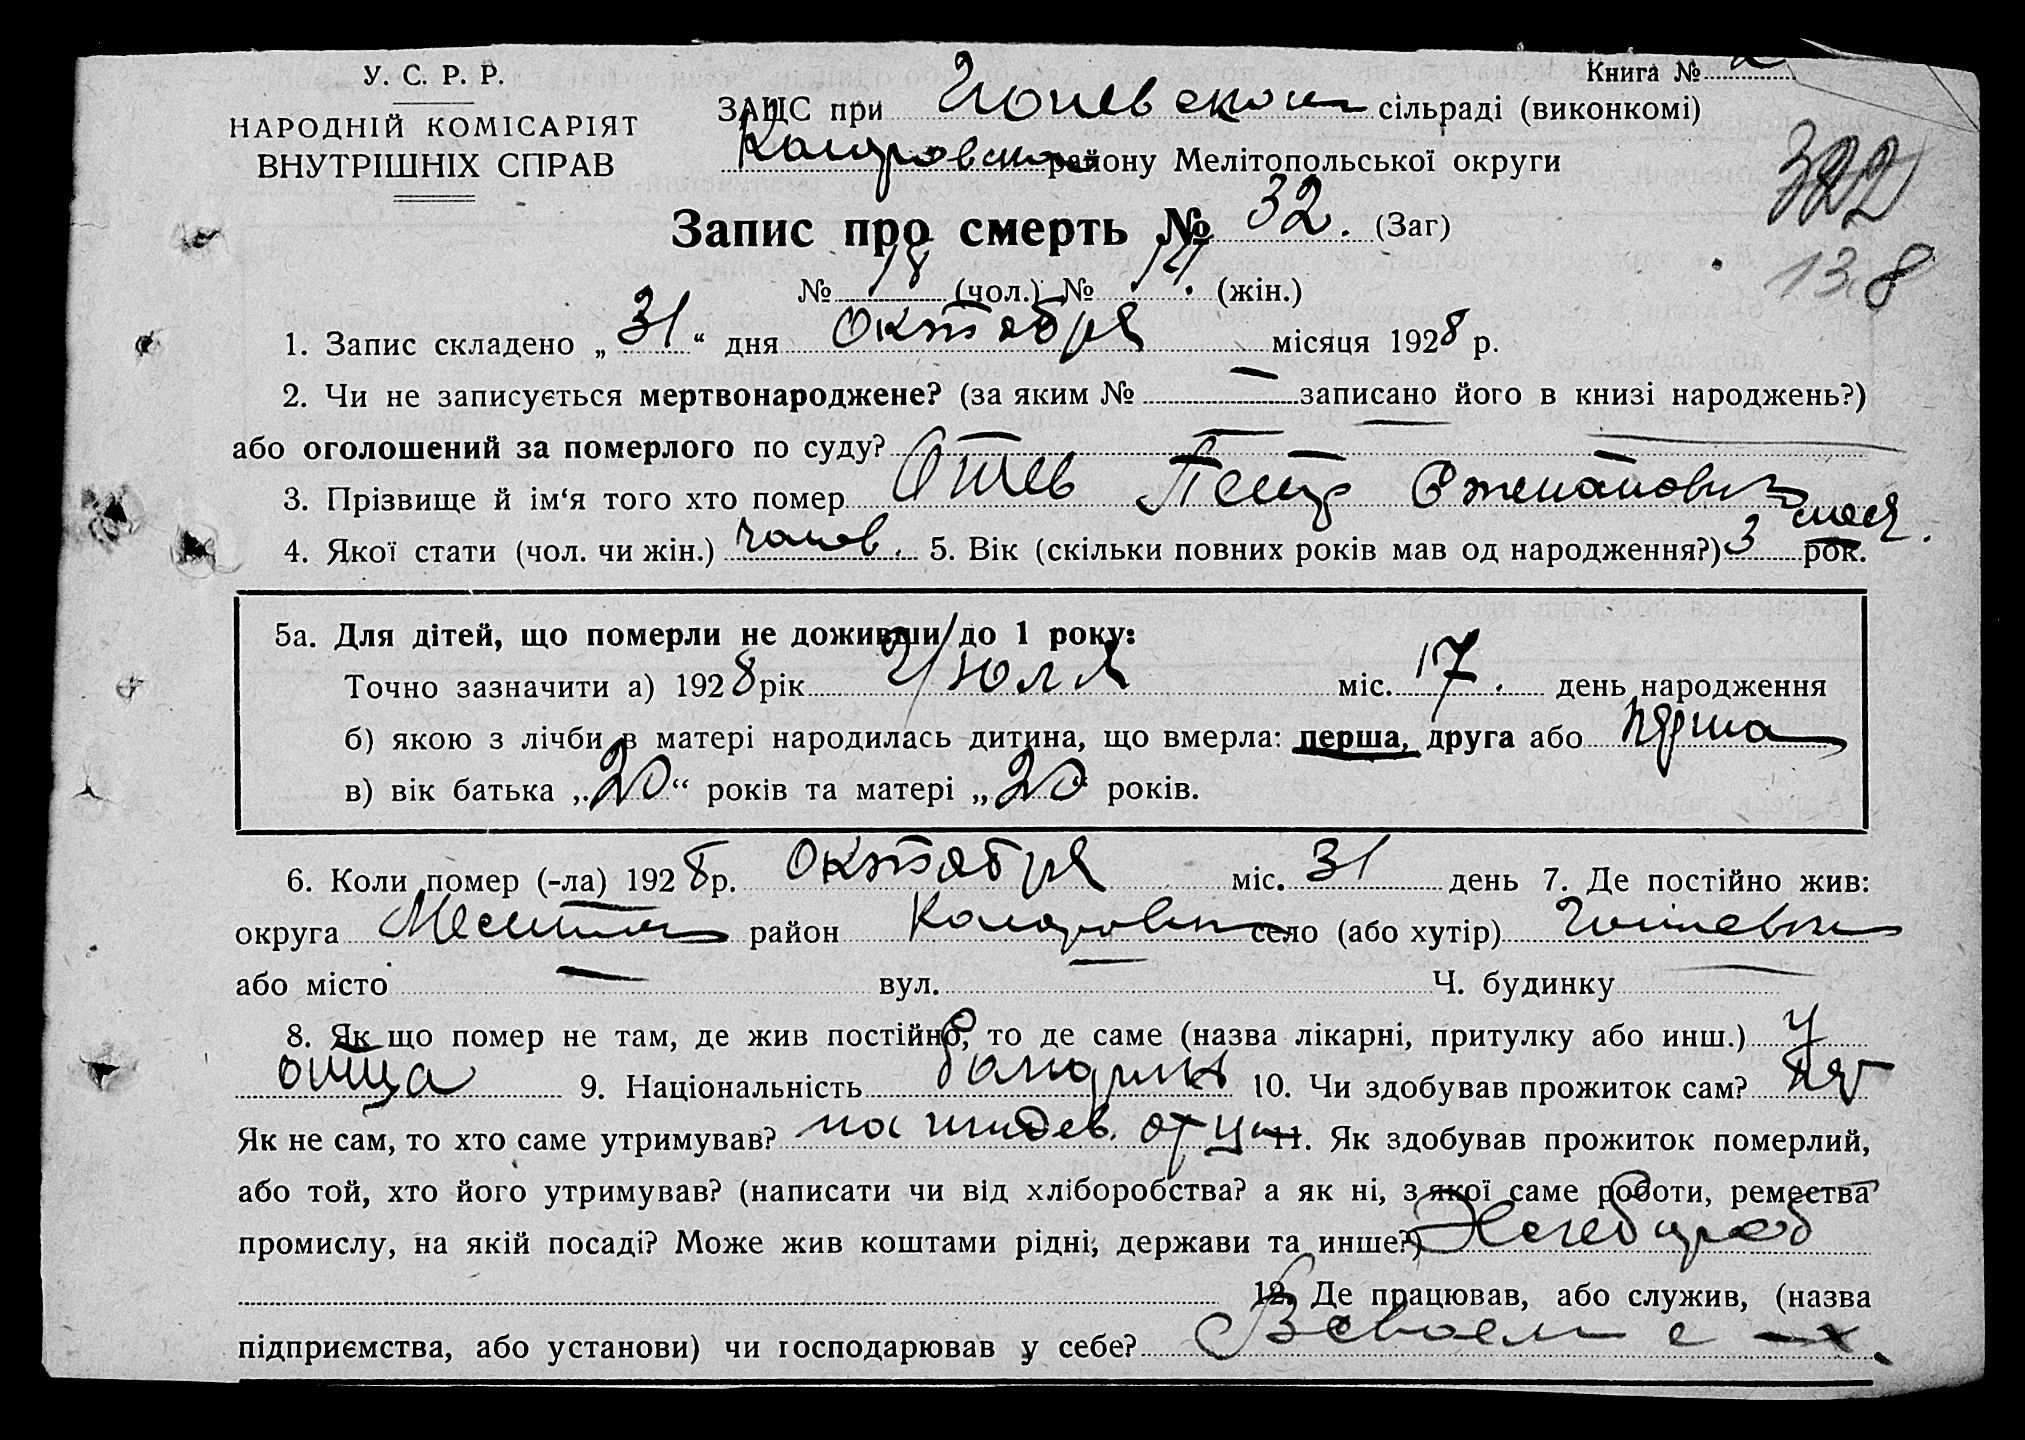 У. С. Р. Р.
НАРОДНІЙ КОМІСАРІЯТ
ВНУТРІШНІХ СПРАВ
Книга №
ЗАЦС при сільраді (виконкомі)
району Мелітопольської округи
322
13.8
Запис про смерть № 32. (Заг)
№ 18 (чол.) № 14. (жін.)
1. Запис складено „31“ дня октября місяця 1928 р.
2. Чи не записується мертвонароджене? (за яким № — записано його в книзі народжень?)
або оголошений за померлого по суду?
3. Прізвище й ім‘я того хто помер Петр
4. Якої стати (чол. чи жін.) 5. Вік (скільки повних років мав од народження?) 3 меся. рок.
5а. Для дітей, що померли не доживши до 1 року:
Точно зазначити а) 1928 рік Июля міс. 17. день народження
б) якою з лічби в матері народилась дитина, що вмерла: перша, друга або перша
в) вік батька „20“ років та матері „20“ років.
6. Коли помер (-ла) 1928 р. октября міс. 31 день 7. Де постійно жив:
округа район село (або хутір)
або місто — вул. — Ч. будинку —
8. Як що помер не там, де жив постійно, то де саме (назва лікарні, притулку або инш.) У
отца 9. Національність 10. Чи здобував прожиток сам?
Як не сам, то хто саме утримував? на иждев. отца 11. Як здобував прожиток померлий,
або той, хто його утримував? (написати чи від хліборобства? а як ні, з якої саме роботи, ремества
промислу, на якій посаді? Може жив коштами рідні, держави та инше?)
12. Де працював, або служив, (назва
підприємства, або установи) чи господарював у себе? В своем с-х.